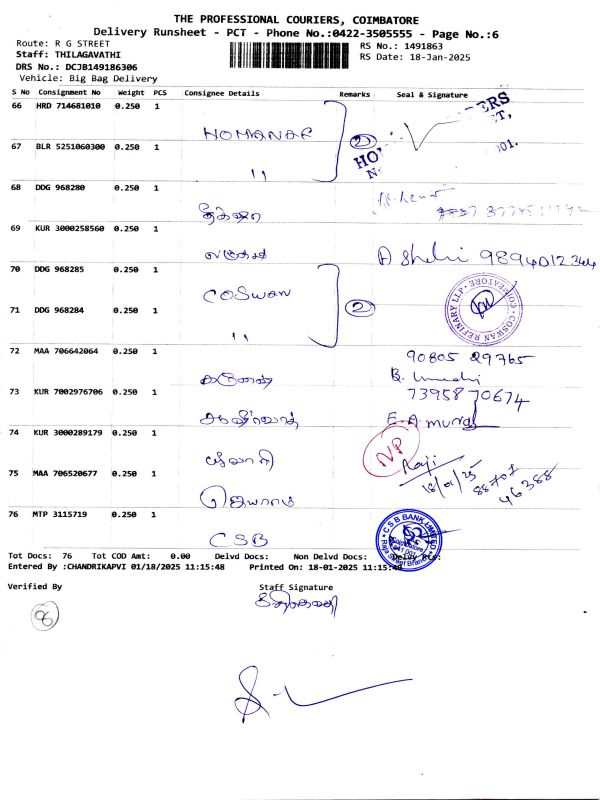 THE PROFESSIONAL COURIERS, COIMBATORE
Delivery Runsheet - PCT - Phone No.:0422-3505555 - Page No.:6
Route: R G STREET
RS No.: 1491863
Staff: THILAGAVATHI
RS Date: 18-Jan-2025
DRS No.: DCJB149186306
Vehicle: Big Bag Delivery
S No Consignment No Weight PCS Consignee Details Remarks Seal & Signature
66 HRD 714681010 0.250 1
HOMANAF 2
67 BLR 5251060300 0.250 1
''
68 DDG 968280 0.250 1
69 KUR 3000258560 0.250 1
A Shelvi 9894012344
70 DDG 968285 0.250 1
COSWAN
COSWAN REFINARY LLP COIMBATORE
71 DDG 968284 0.250 1 2
''
72 MAA 706642064 0.250 1
90805 29765
73 KUR 7002976706 0.250 1
7395870674
74 KUR 3000289179 0.250 1
NP
Raji
18/01/25
88707
46388
75 MAA 706520677 0.250 1
76 MTP 3115719 0.250 1
CSB
CSB BANK LIMITED
Tot Docs: 76 Tot COD Amt: 0.00 Delvd Docs: Non Delvd Docs:
Entered By :CHANDRIKAPVI 01/18/2025 11:15:48 Printed On: 18-01-2025 11:15:48
Verified By Staff Signature